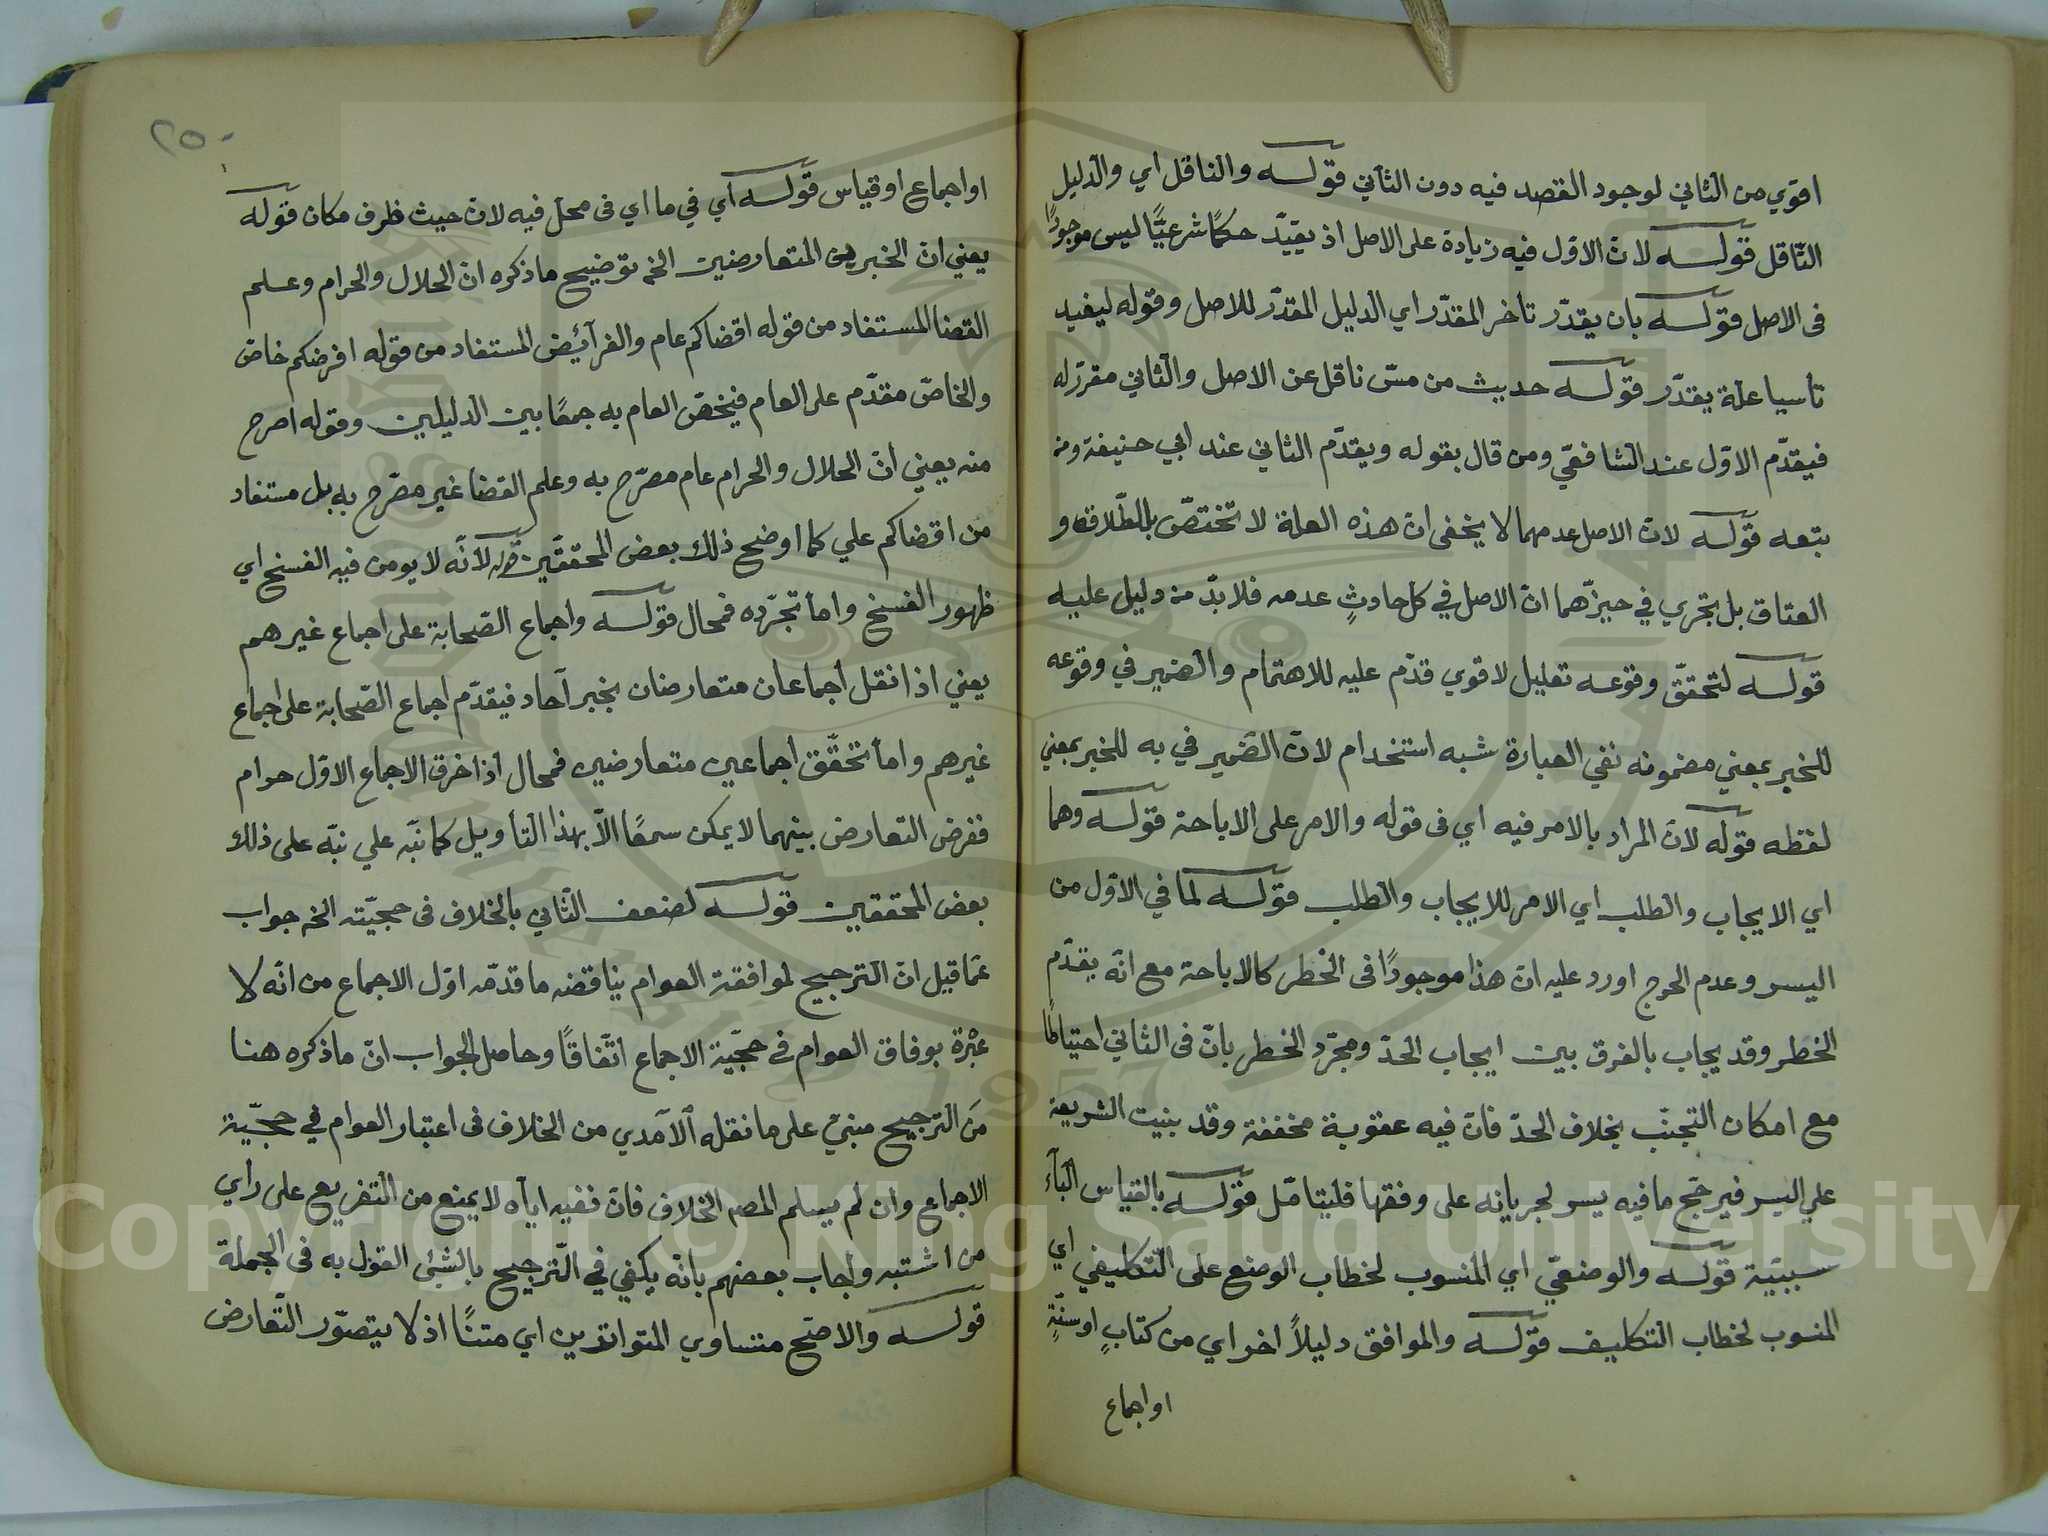 اقوي من الثاني لوجود القصد فيه دون الثاني قوله والناقل اي والدليل
النّاقل قوله لانّ الاوّل فيه زيادة على الاصل اذ يقيّد حكمًا شرعيًّا ليس موجودًا
فى الاصل قوله بان يقدّر تأخر المقدّر اي الدليل المقدّر للاصل وقوله ليفيد
تأسيا علة يقدّر قوله حديث من مسّ ناقل عن الاصل والثاني مقرّر له
فيقدّم الاوّل عند الشافعيّ ومن قال بقوله ويقدّم الثاني عند ابي حنيفة ومن
تبعه قوله لانّ الاصل عدمهما لا يخفى انّ هذه العلة لا تختصّ بالطّلاق و
العتاق بل يجري في حيزّهما انّ الاصل في كل حادثٍ عدمه فلا بدّ من دليل عليه
قوله لتحقّق وقوعه تعليل لاقوي قدّم عليه للاهتمام والضمير في وقوعه
للخبر بمعني مضمونه نفي العبارة شبه استخدام لانّ الضّمير في به للخبر بمعني
لفظه قوله لانّ المراد بالامر فيه اي فى قوله والامر على الاباحة قوله وهما
اي الايجاب والطلب اي الامر للايجاب والطلب قوله لما في الاوّل من
اليسر وعدم الحرج اورد عليه انّ هذا موجودًا فى الخطر كالاباحة مع انّه يقدّم
الخطر وقد يجاب بالفرق بين ايجاب الحدّ ومجرّد الخطر بانّ فى الثاني احتياطًا
مع امكان التجنّب بخلاف الحدّ فانّ فيه عقوبة مخففة وقد بنيت الشريعة
علي اليسر فيرجّح ما فيه يسر لجريانه على وفقها فليتامّل قوله بالقياس الباء
سببيّة قوله والوضعيّ اي المنسوب لخطاب الوضع على التّكليفي اي
المنسوب لخطاب التكليف قوله والموافق دليلاً اخر اي من كتابٍ او سنّةٍ
او اجماع
٢٥٠
او اجماع او قياس قوله اي في ما اي فى محلّ فيه لانّ حيث ظرف مكان قوله
يعني انّ الخبرين المتعارضين الخ توضيح ما ذكره انّ الحلال والحرام وعلم
القضا المستفاد من قوله اقضاكم عام والفرآئض المستفاد من قوله افرضكم خاصّ
والخاصّ مقدّم على العام فيخصّ العام به جمعًا بين الدليلين وقوله اصرح
منه يعني انّ الحلال والحرام عام مصرّح به وعلم القضا غير مصرّح به بل مستفاد
من اقضاكم علي كما اوضح ذلك بعض المحقّقين قوله لانّه لا يومن فيه الفسخ اي
ظهور الفسخ واما تجرّده فمحال قوله واجماع الصّحابة على اجماع غيرهم
يعني اذا نقل اجماعان متعارضان بخبر آحاد فيقدّم اجماع الصّحابة على اجماع
غيرهم واما تحقّق اجماعين متعارضين فمحال اذا خرق الاجماع الاوّل حرام
ففرض التعارض بينهما لا يمكن سمعًا الاّ بهذا التأويل كما نبّه علي نبّه على ذلك
بعض المحققين قوله لضعف الثّاني بالخلاف فى حجيّته الخ جواب
عمّا قيل انّ الترجيح لموافقة العوام يناقضه ما قدمّه اوّل الاجماع من انّه لا
عبْرة بوفاق العوام في حجيّة الاجماع اتّفاقًا وحاصل الجواب انّ ما ذكره هنا
منَ الترجيح مبنيّ على ما نقله الآمدي من الخلاف فى اعتبار العوام في حجّيّة
الاجماع وان لم يسلم المصـ الخلاف فانّ نفيه ايآه لا يمنع من التفريع على راي
من اشتبه واجاب بعضهم بانّه يكفي في الترجيح بالشئ القول به فى الجملة
قوله والاصّح متساوي المتواترين اي متنًا اذ لا يتصوّر التّعارض
Copyright © King Saud University
King Saud University
1957